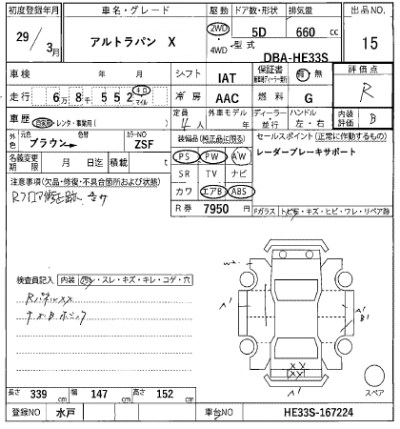 初度登録年月 車名・グレード 駆動 ドア数・形状 排気量 出品NO.
29/3月 アルトラパン X 2WD ・4WD 5D 660cc 15
型式 DBA-HE33S
車検 年 月 シフト IAT 保証書 有 無 評価点
走行 6万8千552 キロ マイル 冷房 AAC 燃料 G R
車歴 自家用・レンタ・事業用( ) 定員 4人 外車モデル 年 ディーラー・並行 ハンドル 左・右 内装評価 B
外色 元色 ブラウン 色替 カラーNO ZSF 装備品(純正品に限る) セールスポイント(正常に作動するもの)
PS PW AW レーダーブレーキサポート
名義変更期限 月 日迄 積載 t SR TV ナビ
注意事項(欠品・修復・不具合箇所および状態) カワ エアB ABS
R券 7950円
Fガラス トビ石・キズ・ヒビ・ワレ・リペア跡
検査員記入 内装 ・スレ・キズ・キレ・コゲ・穴
W2
A1 A1
B1
XX
XY
A1
スペア
長さ 339cm 幅 147cm 高さ 152cm
登録NO 水戸 車台NO HE33S-167224